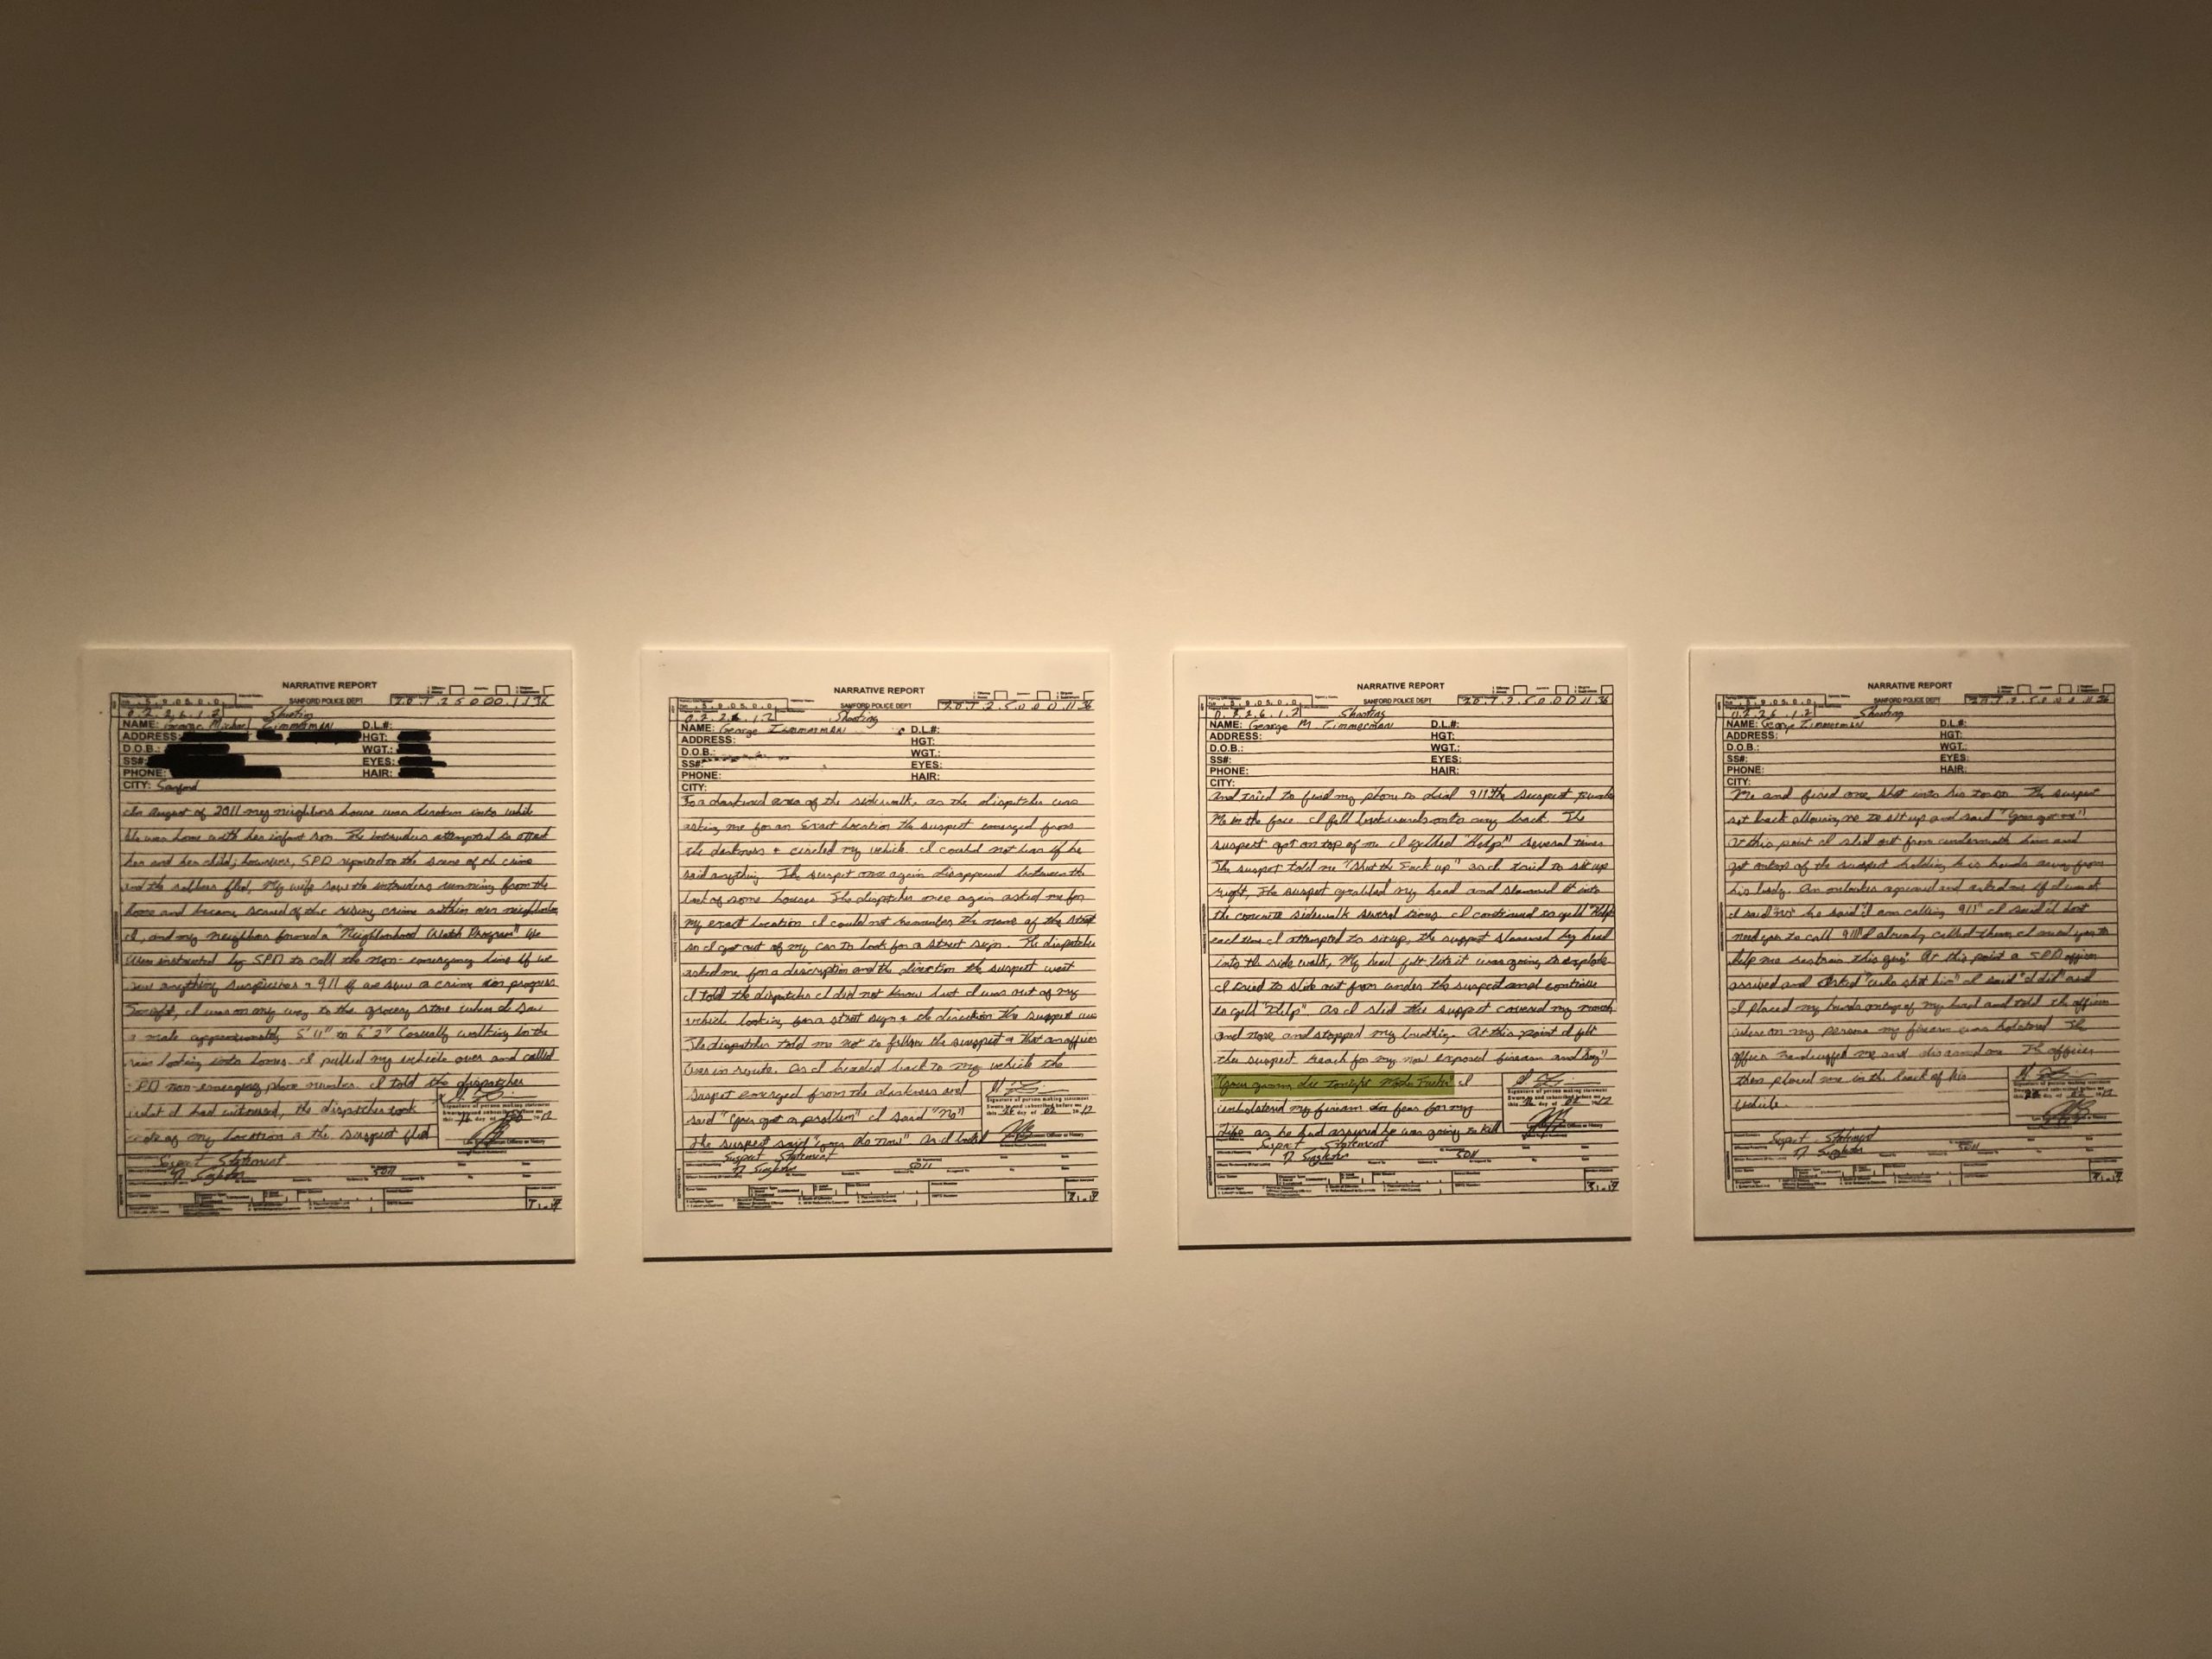 NARRATIVE REPORT
SANFORD POLICE DEPT
0.2.2.6.1.2 Shooting
NAME: George Michael Zimmerman D.L#:
ADDRESS: HGT:
D.O.B.: WGT.:
SS#: EYES:
PHONE: HAIR:
CITY: Sanford
In August of 2011 my neighbors house was broken into while
she was home with her infant son. The intruders attempted to attack
her and her child; however, SPD reported to the scene of the crime
and the robbers fled, My wife saw the intruders running from the
home and became scared of the rising crime within our neighborhood
I, and my neighbors formed a "Neighborhood Watch Program" We
were instructed by SPD to call the non-emergency line if we
saw anything suspicious & 911 if we saw a crime in progress
Tonight, I was on my way to the grocery store when I saw
a male approximately 5'11" to 6'2" casually walking in the
rain looking into homes. I pulled my vehicle over and called
SPD non-emergency phone number. I told the dispatcher
what I had witnessed, the dispatcher took
note of my location & the suspect fled
Signature of person making statement
Sworn to and subscribed before me
Suspect Statement
D. Singleton
NARRATIVE REPORT
SANFORD POLICE DEPT
0.2.2.6.1.2 Shooting
NAME: George Zimmerman D.L#:
ADDRESS: HGT:
D.O.B.: WGT.:
SS#: EYES:
PHONE: HAIR:
CITY:
To a darkened area of the sidewalk, as the dispatcher was
asking me for an exact location the suspect emerged from
the darkness & circled my vehicle. I could not hear if he
said anything. The suspect once again disappeared between the
back of some houses. The dispatcher once again asked me for
my exact location I could not remember the name of the street
so I got out of my car to look for a street sign. The dispatcher
asked me for a description and the direction the suspect went
I told the dispatcher I did not know but I was out of my
vehicle looking for a street sign & the direction the suspect went
The dispatcher told me not to follow the suspect & that an officer
was in route. As I headed back to my vehicle the
suspect emerged from the darkness and
said "You got a problem" I said "No"
The suspect said "you do now" As I looked
Signature of person making statement
Sworn to and subscribed before me
Suspect Statement
D. Singleton 5011
NARRATIVE REPORT
SANFORD POLICE DEPT
0.2.2.6.1.2 Shooting
NAME: George M Zimmerman D.L#:
ADDRESS: HGT:
D.O.B.: WGT.:
SS#: EYES:
PHONE: HAIR:
CITY:
And tried to find my phone to dial 911 the suspect punched
Me in the face I fell backwards onto my back. The
suspect got on top of me I yelled "Help" several times
The suspect told me "Shut the Fuck up" as I tried to sit up
right, The suspect grabbed my head and slammed it into
the concrete sidewalk several times. I continued to yell "Help"
each time I attempted to sit up, the suspect slammed my head
into the side walk, My head felt like it was going to explode
I tried to slide out from under the suspect and continue
to yell "Help". As I slid the suspect covered my mouth
and nose and stopped my breathing. At this point I felt
the suspect reach for my now exposed firearm and say
"Your gonna die tonight Mother Fucker" I
unholstered my firearm in fear for my
life as he had assured he was going to kill
Signature of person making statement
Sworn to and subscribed before me
Suspect Statement
D. Singleton 5011
NARRATIVE REPORT
SANFORD POLICE DEPT
0.2.2.6.1.2 Shooting
NAME: George Zimmerman D.L#:
ADDRESS: HGT:
D.O.B.: WGT.:
SS#: EYES:
PHONE: HAIR:
CITY:
Me and fired one shot into his torso. The suspect
sat back allowing me to sit up and said "You got me"!
At this point I slid out from underneath him and
got ontop of the suspect holding his hands away from
his body. An onlooker appeared and asked me if I was ok
I said "no" he said "I am calling 911" I said I dont
need you to call 911 I already called them I need you to
help me restrain this guy. At this point a SPD officer
arrived and Asked "who shot him" I said "I did" and
I placed my hands ontop of my head and told the officer
where on my persons my firearm was holstered. The
officer handcuffed me and disarmed me The officer
then placed me in the back of his
Vehicle.
Signature of person making statement
Sworn to and subscribed before me
Suspect Statement
D. Singleton 5011